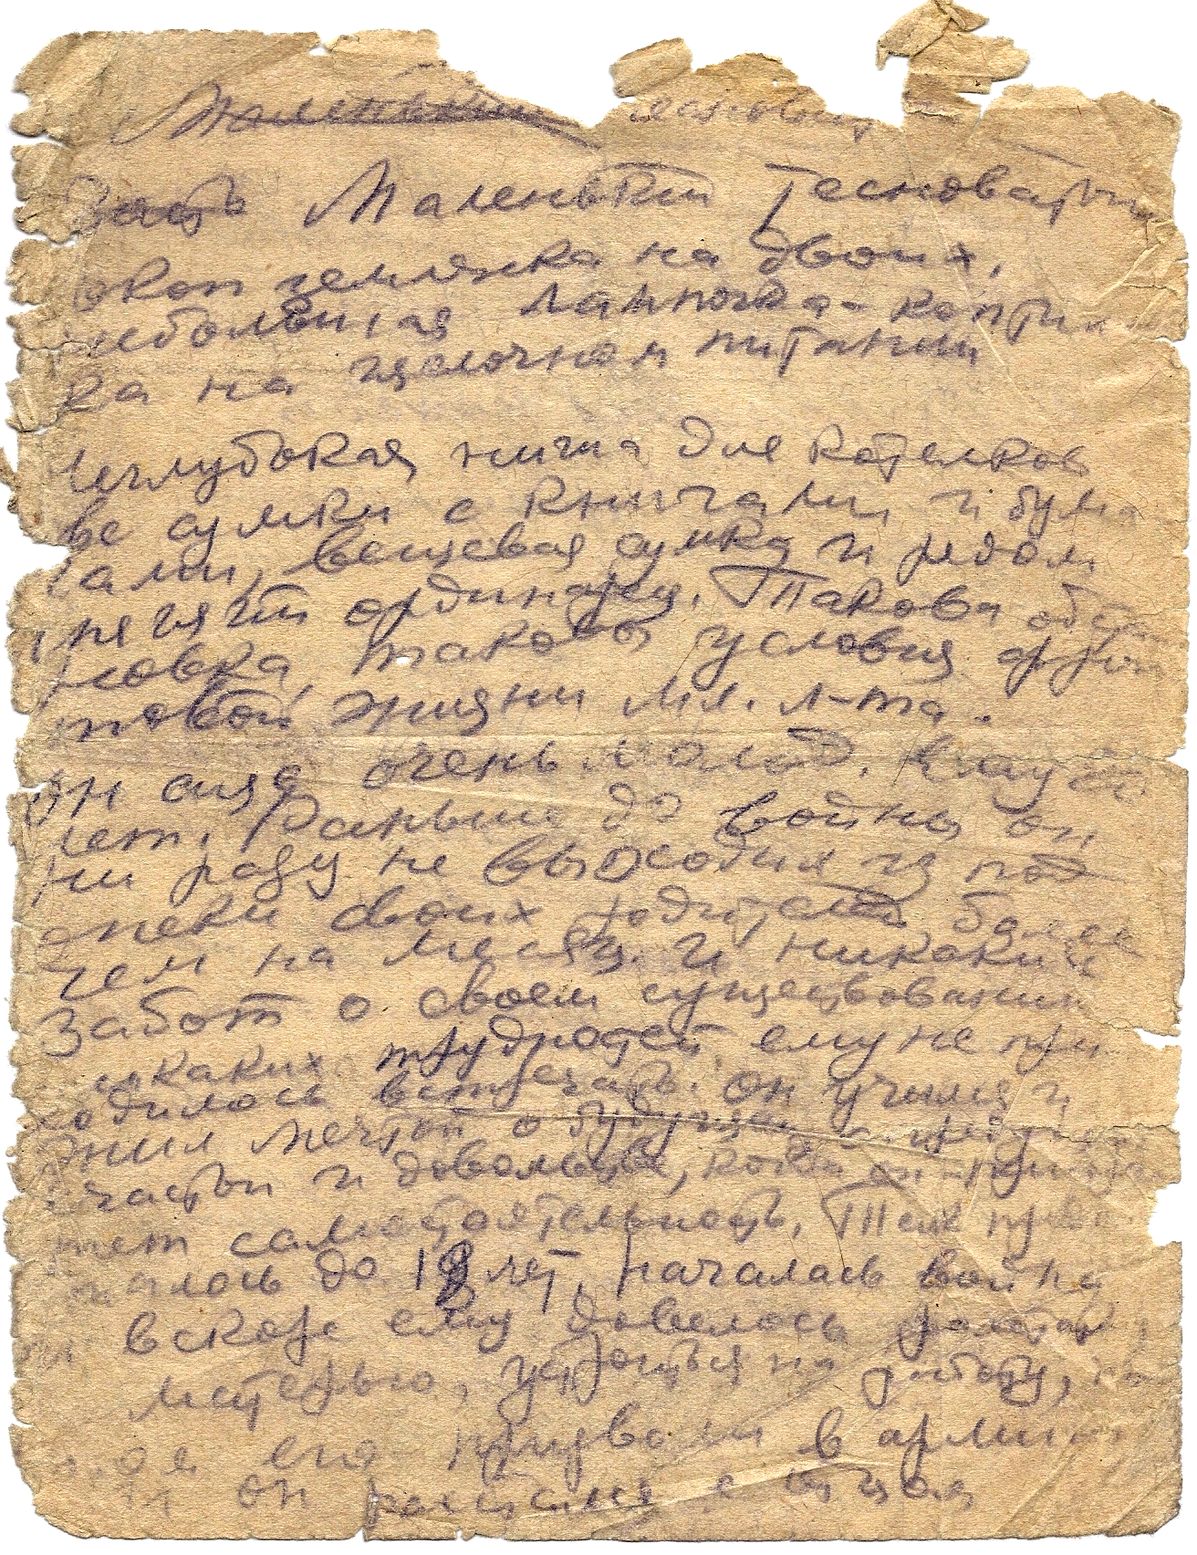 Маленький
Маленький тесноватый
окоп землянка на двоих,
небольшая лампочка-коптил
ка на щелочном питании
неглубокая ниша для котелков
ве сумки с книгами и бума
гами, вещевая сумка и рядом
ординарец. Такова обста
новка, таковы условия фрон
товой жизни мл. л-та.
он еще очень молод.
лет. Раньше до войны он
ни разу не выходил из под
опеки своих родителей более
чем на месяц и никаких
забот о своем существовании
никаких трудностей ему не при
ходилось встречать. он учился и
жил мечтой о будущем
счастьи и довольстве, когда он
самостоятельность. Так продо
лжалось до 18 лет, началась война
вскоре ему довелось
матерью, устроиться на работу,
его призвали в армию
он с отцом